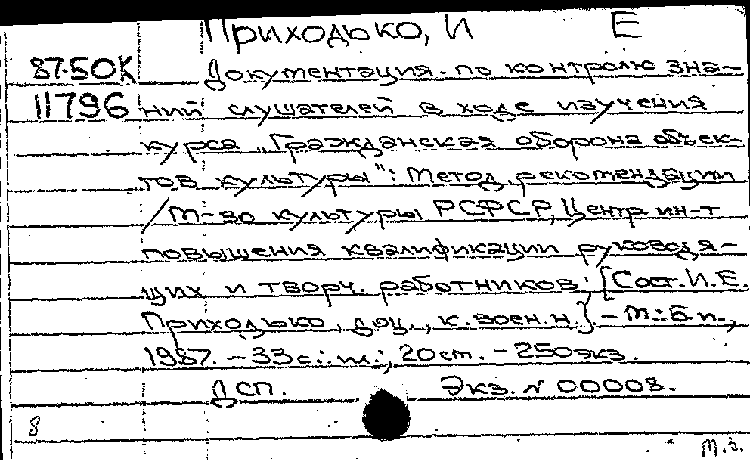 Приходько, И Е
87-50К Документация по контролю зна-
11796 ний слушателей в ходе изучения
курса „Гражданская оборона объек-
тов культуры": Метод. рекомендации
/М-во культуры РСФСР, Центр. ин-т
повышения квалификации руководя-
щих и творч. работников; [Сост. И.Е.
Приходько, доц., к. воен. н.] - М.: Б.и.,
1987. - 33 с.: ил.; 20 см. - 250 экз.
ДСП. Экз. № 00008.
8